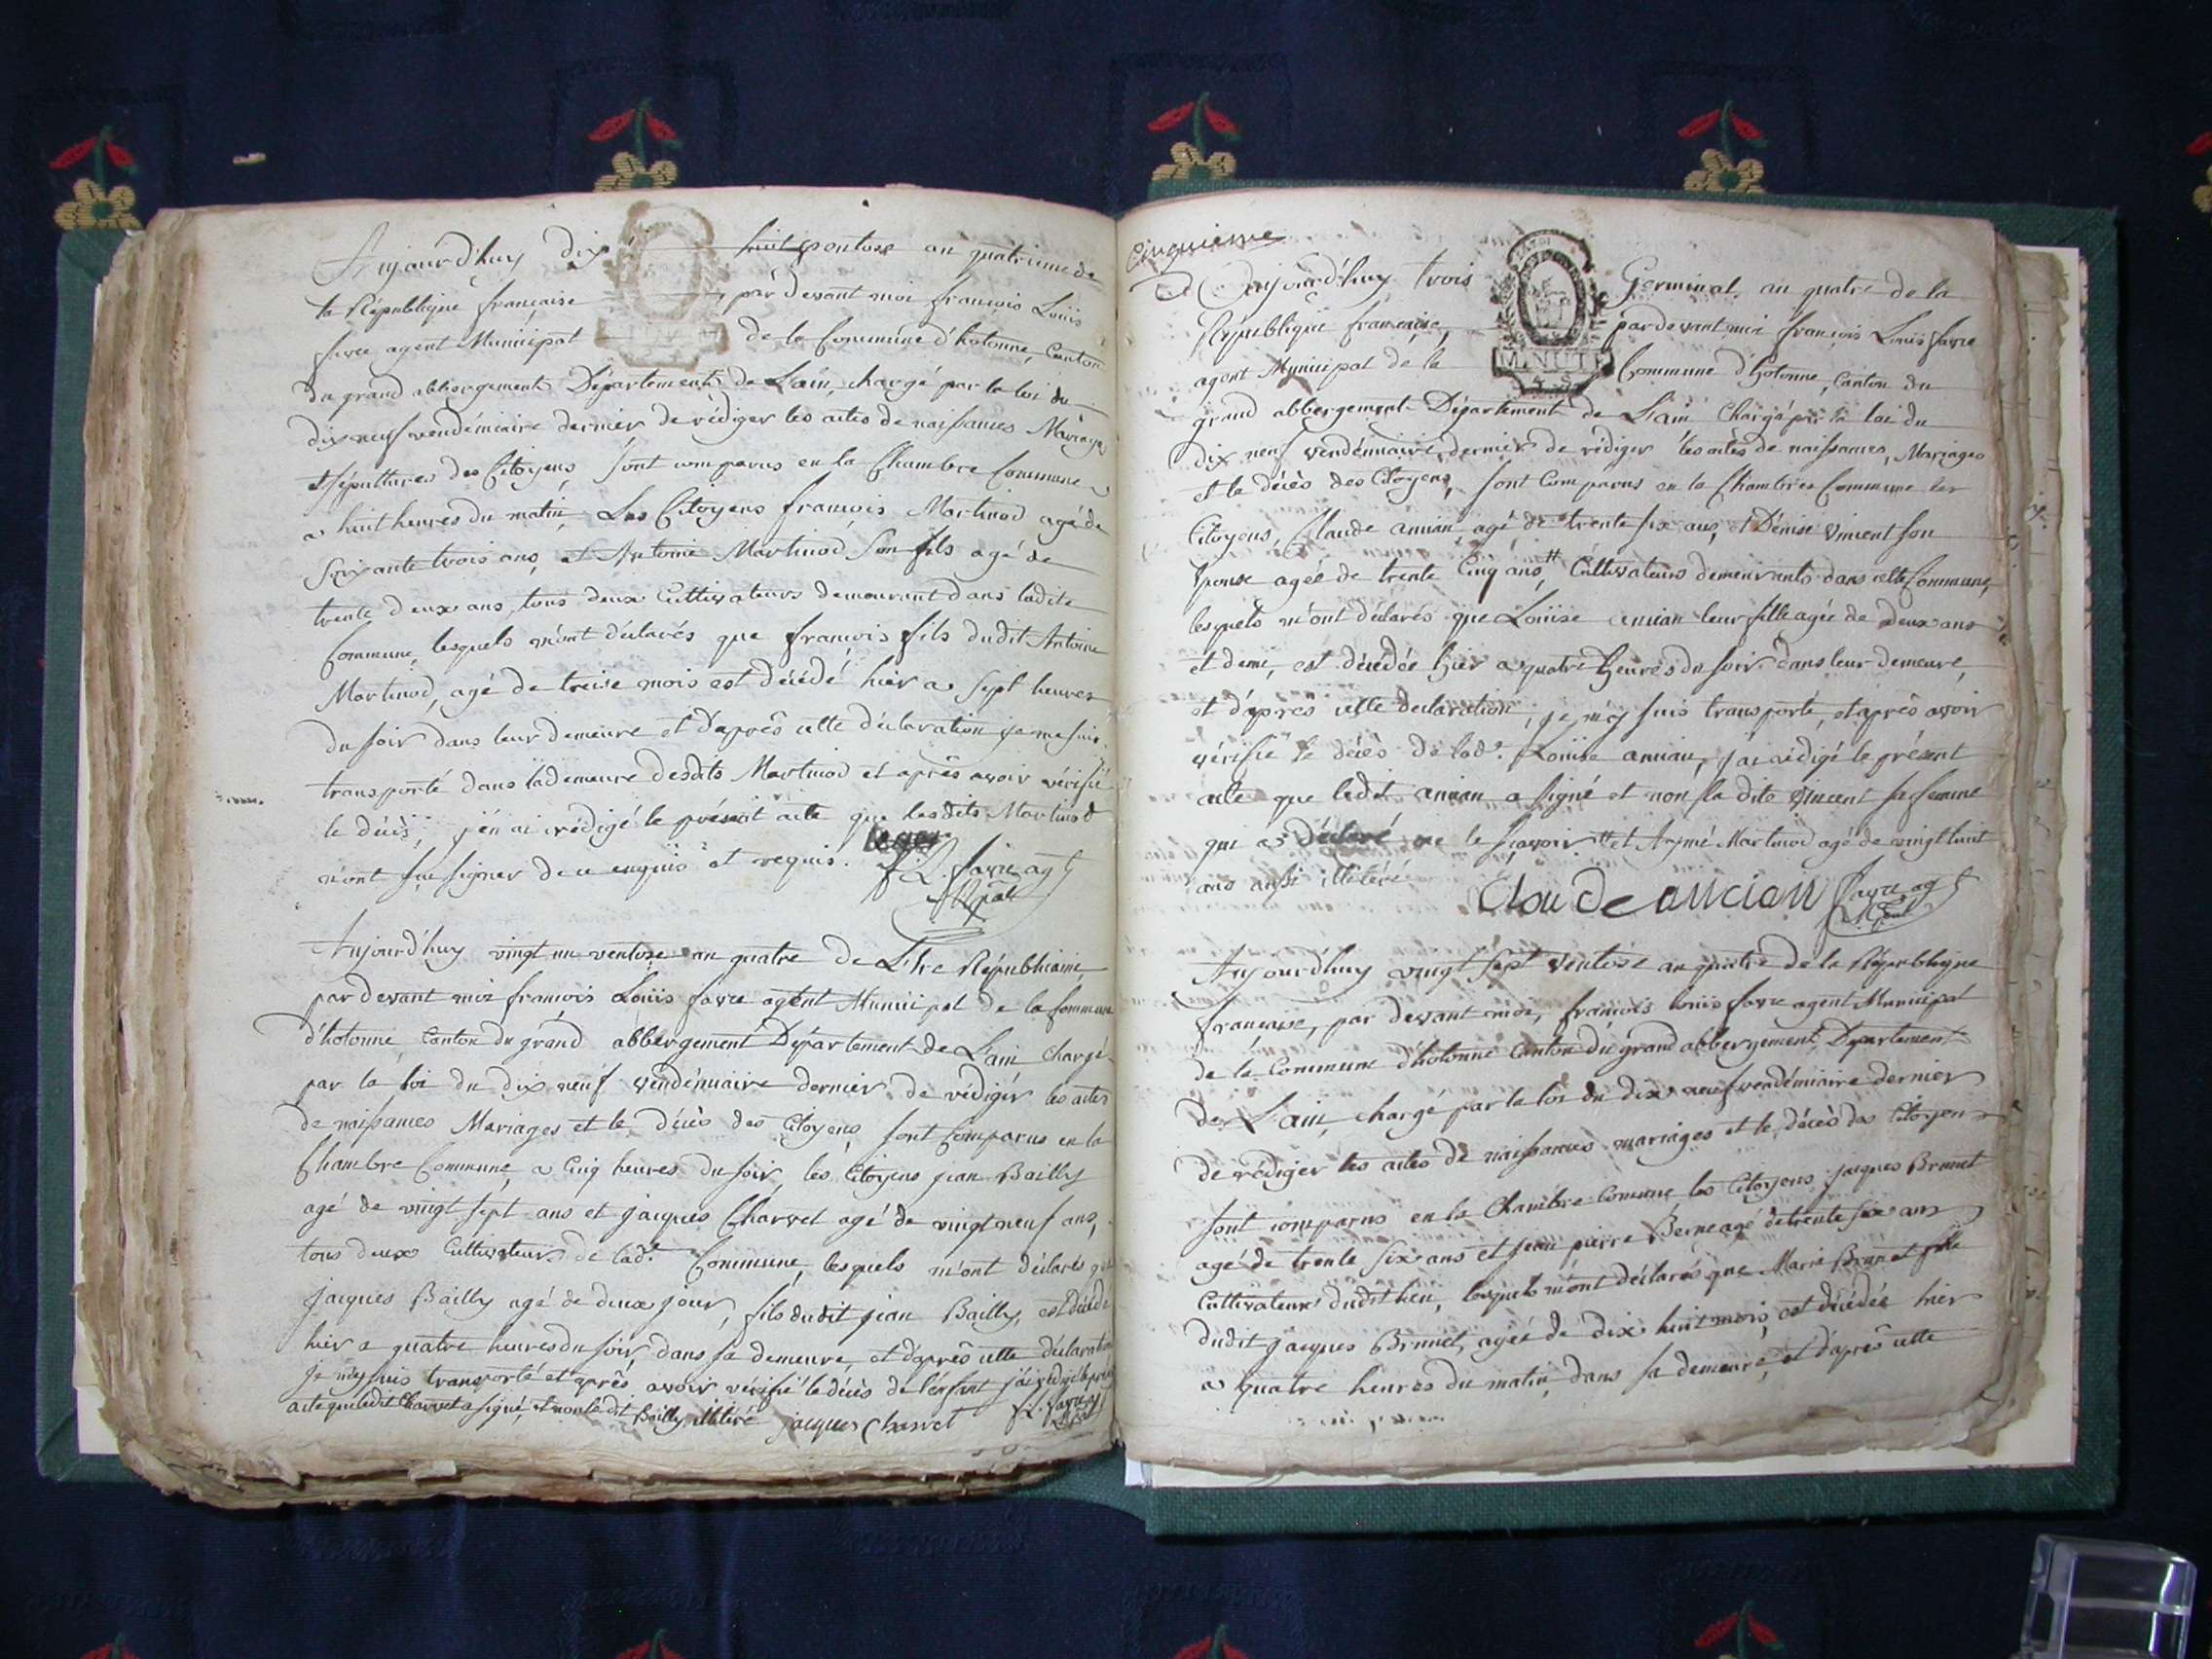 Aujourd'huy dix huit ventose an quatrieme de
la République française par devant moi françois Louis
favre agent Municipal de la Commune d'hotonne, Canton
du grand abbergement Département de L'ain, chargé par la loi du
dix neuf vendémiaire dernier de rédiger les actes de naissances Mariages
et sépultures des Citoyens, sont comparus en la Chambre Commune
a huit heures du matin, Les Citoyens françois Martinod agé de
soixante trois ans, et Antoine Martinod son fils agé de
trente deux ans, tous deux Cultivateurs demeurant dans ladite
Commune, lesquels m'ont déclarés que françois fils dudit Antoine
Martinod, agé de treize mois est décédé hier a sept heures
du soir dans leur demeure et d'après cette déclaration je me suis
transporté dans la demeure desdits Martinod et après avoir vérifié
le décès, j'en ai rédigé le présent acte que lesdits Martinod
n'ont sçu signer de ce enquis et requis.
f. L. favre agt
Mpal
Aujourd'huy vingt un ventose an quatre de L'Ere Républicaine,
par devant moi françois Louis favre agent Municipal de la Commune
d'hotonne, Canton du grand abbergement Département de L'ain chargé
par la loi du dix neuf vendémiaire dernier de rédiger les actes
de naissances Mariages et le décès des Citoyens, sont Comparus en la
Chambre Commune, a Cinq heures du soir, les Citoyens jean Bailly
agé de vingt sept ans et jacques Charvet agé de vingt neuf ans,
tous deux Cultivateurs de lad.e Commune, lesquels m'ont déclarés que
jacques Bailly agé de deux jour, fils dudit jean Bailly, est décédé
hier a quatre heures du soir, dans sa demeure, et d'après cette déclaration
je m'y suis transporté et après avoir vérifié le décès de l'enfant j'ai rédigé le présent
acte que ledit Charvet a signé, et non ledit Bailly illitéré jacques Charvet f. L. favre agt
Mpal
Cinquieme
Aujourd'huy trois Germinal, an quatre de la
République française, par devant moi françois Louis favre
agent Municipal de la Commune d'hotonne, Canton du
grand abbergement Département de L'ain Chargé par la loi du
dix neuf vendémiaire dernier de rédiger les actes de naissances, Mariages
et le décès des Citoyens, sont Comparus en la Chambre Commune les
Citoyens, Claude ancian agé de trente six ans, et Denise vincent son
épouse agée de trente Cinq ans, Cultivateurs demeurants dans cette Commune,
lesquels m'ont déclarés que Louise ancian leur fille agée de deux ans
et demi, est décédée hier a quatre heures du soir dans leur demeure,
et d'après cette declaration, je m'y suis transporté, et après avoir
vérifié le décès de lad.e Louise ancian, j'ai rédigé le présent
acte que ledit ancian a signé et non la dite vincent sa femme
qui a déclaré ne le sçavoir et Aymé Martinod agé de vingt huit
ans aussi illitéré
Claude ancian favre agt
Mpal
Aujourd'huy vingt sept ventose an quatre de la République
française, par devant moi, françois louis favre agent Municipal
de la Commune d'hotonne Canton du grand abbergement, Département
de L'ain, chargé par la loi du dix neuf vendémiaire dernier
de rédiger les actes de naissances mariages et le décès des Citoyens
sont comparus en la Chambre Comune, les Citoyens jacques Brunet
agé de trente six ans et jean pierre Berne agé de trente six ans
Cultivateurs dudit lieu, lesquels m'ont déclarés que Marie Brunet fille
dudit jacques Brunet, agée de dix huit mois, est décédée hier
a quatre heures du matin, dans sa demeure, et d'après cette